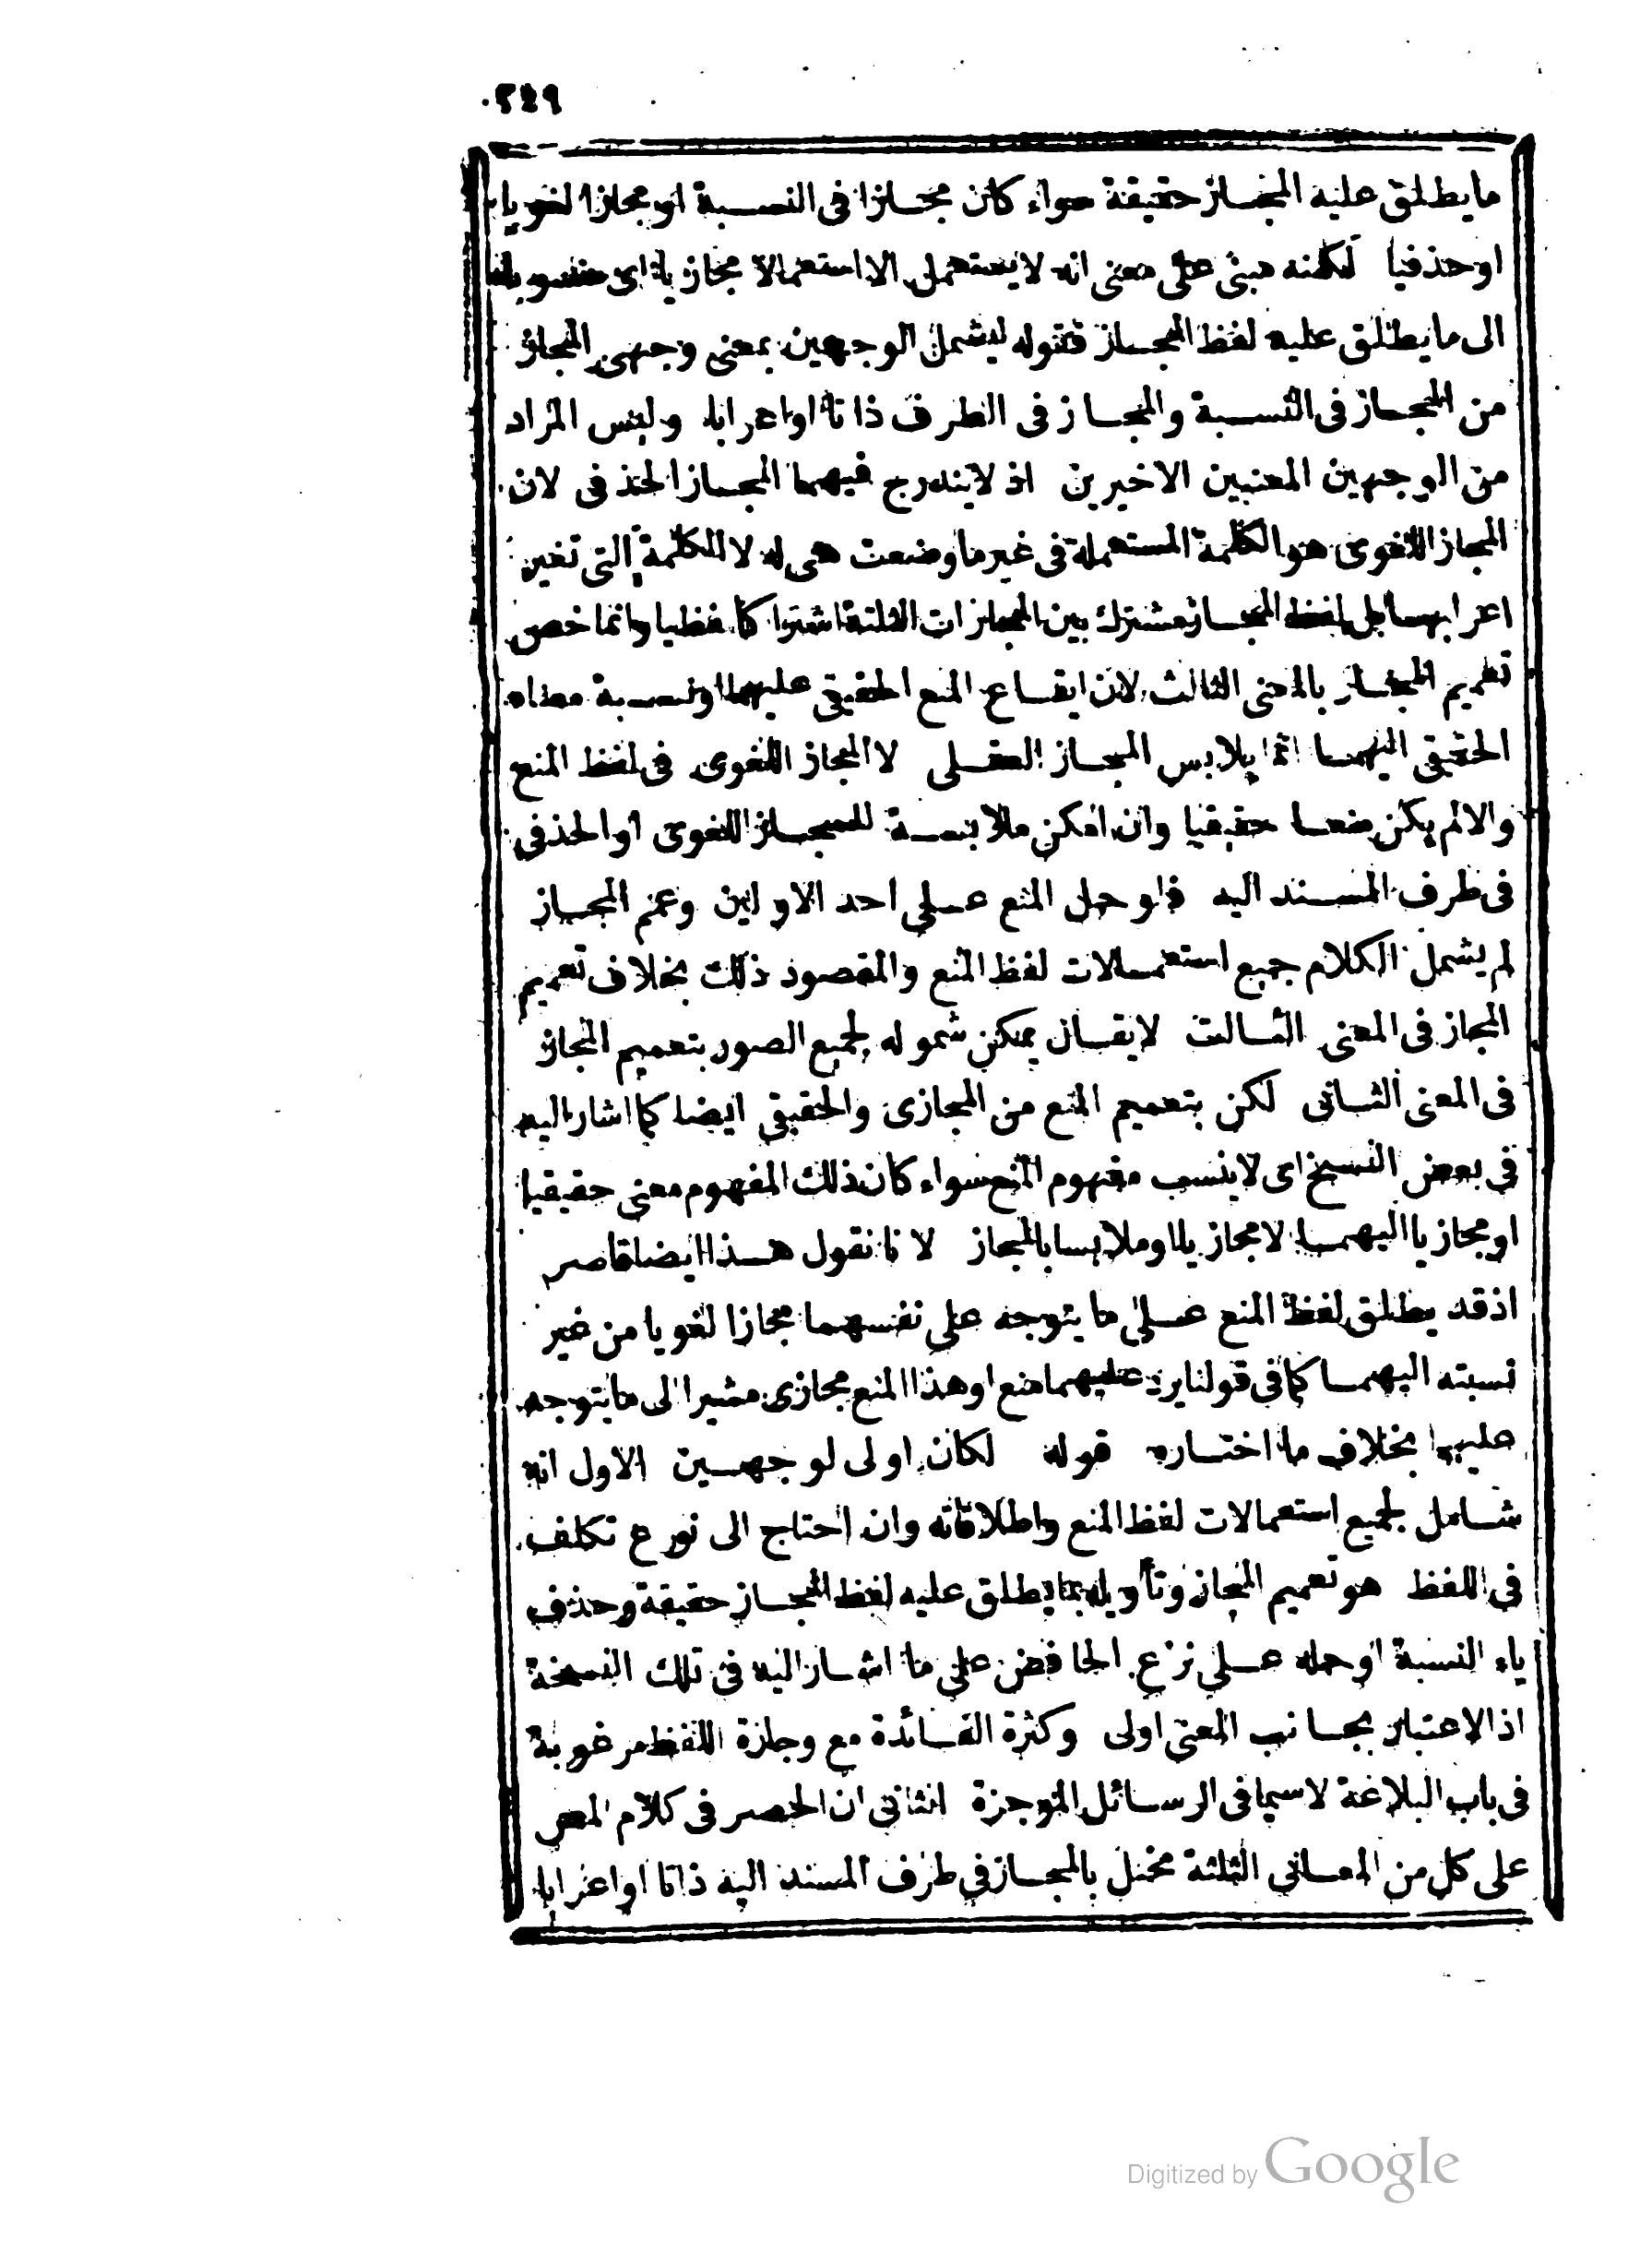 ٢٤٩
ما يطلق عليه المجاز حقيقة سواء كان مجازا فى النسبة او مجازا لغويا
او حذفيا لكنه مبنى على معنى انه لا يستعمل الا استعمالا مجازيا اى منسوبا
الى ما يطلق عليه لفظ المجاز فقوله ليشمل الوجهين بمعنى وجهى المجاز
من المجاز فى النسبة والمجاز فى الطرف ذاتا او اعرابا وليس المراد
من الوجهين المعنيين الاخيرين اذ لا يندرج فيهما المجاز الحذفى لان
المجاز اللغوى هو الكلمة المستعملة فى غير ما وضعت هى له لا الكلمة التى تغير
اعرابها بل لفظ المجاز مشترك بين المجازات الثلثة اشتراكا لفظيا وانما خص
تعميم المجاز بالمعنى الثالث لان ايقاع المنع الحقيقى عليهما او نسبة معناه
الحقيقى اليهما انما يلابس المجاز العقلى لا المجاز اللغوى فى لفظ المنع
والا لم يكن منعا حقيقيا وان امكن ملابسة للمجاز اللغوى او الحذفى
فى طرف المسند اليه فلو حمل المنع على احد الاولين وعمم المجاز
لم يشمل الكلام جميع استعمالات لفظ المنع والمقصود ذلك بخلاف تعميم
المجاز فى المعنى الثالث لا يقال يمكن شموله لجميع الصور بتعميم المجاز
فى المعنى الثانى لكن بتعميم المنع من المجازى والحقيقى ايضا كما اشار اليه
فى بعض النسخ اى لا ينسب مفهوم المنع سواء كان ذلك المفهوم معنى حقيقيا
او مجازيا اليهما الا مجازيا او ملابسا بالمجاز لانا نقول هذا ايضا قاصر
اذ قد يطلق لفظ المنع على ما يتوجه على نفسهما مجازا لغويا من غير
نسبته اليهما كما فى قولنا يرد عليهما منع او هذا المنع مجازى مشيرا الى ما يتوجه
عليهما بخلاف ما اختاره قوله لكان اولى لوجهين الاول انه
شامل لجميع استعمالات لفظ المنع واطلاقاته وان احتاج الى نوع تكلف
فى اللفظ هو تعميم المجاز وتأويله بما يطلق عليه لفظ المجاز حقيقة وحذف
ياء النسبة او حمله على نزع الخافض على ما اشار اليه فى تلك النسخة
اذ الاعتبار بجانب المعنى اولى وكثرة الفائدة مع وجازة اللفظ مرغوبة
فى باب البلاغة لا سيما فى الرسائل الموجزة الثانى ان الحصر فى كلام المص
على كل من المعانى الثلثة مختل بالمجاز فى طرف المسند اليه ذاتا او اعرابا
Digitized by Google